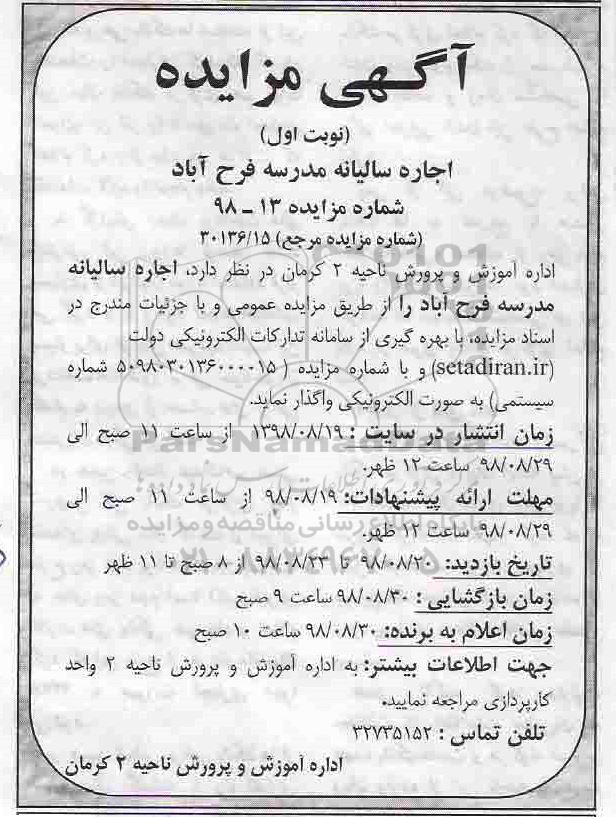 آگهی مزایده
(نوبت اول)
اجاره سالیانه مدرسه فرح آباد
شماره مزایده ۱۳ ـ ۹۸
(شماره مزایده مرجع) ۳۰۱۳۶/۱۵
اداره آموزش و پرورش ناحیه ۲ کرمان در نظر دارد، اجاره سالیانه
مدرسه فرح آباد را از طریق مزایده عمومی و با جزئیات مندرج در
اسناد مزایده، با بهره گیری از سامانه تدارکات الکترونیکی دولت
(setadiran.ir) و با شماره مزایده ( ۵۰۹۸۰۳۰۱۳۶۰۰۰۰۱۵ شماره
سیستمی) به صورت الکترونیکی واگذار نماید.
زمان انتشار در سایت : ۱۳۹۸/۰۸/۱۹ از ساعت ۱۱ صبح الی
۹۸/۰۸/۲۹ ساعت ۱۲ ظهر.
مهلت ارائه پیشنهادات: ۹۸/۰۸/۱۹ از ساعت ۱۱ صبح الی
۹۸/۰۸/۲۹ ساعت ۱۲ ظهر.
تاریخ بازدید: ۹۸/۰۸/۲۰ تا ۹۸/۰۸/۲۳ از ۸ صبح تا ۱۱ ظهر
زمان بازگشایی : ۹۸/۰۸/۳۰ ساعت ۹ صبح
زمان اعلام به برنده: ۹۸/۰۸/۳۰ ساعت ۱۰ صبح
جهت اطلاعات بیشتر: به اداره آموزش و پرورش ناحیه ۲ واحد
کارپردازی مراجعه نمایید.
تلفن تماس : ۳۲۷۳۵۱۵۲
اداره آموزش و پرورش ناحیه ۲ کرمان
ParsNamadData
پایگاه اطلاع رسانی مناقصه و مزایده